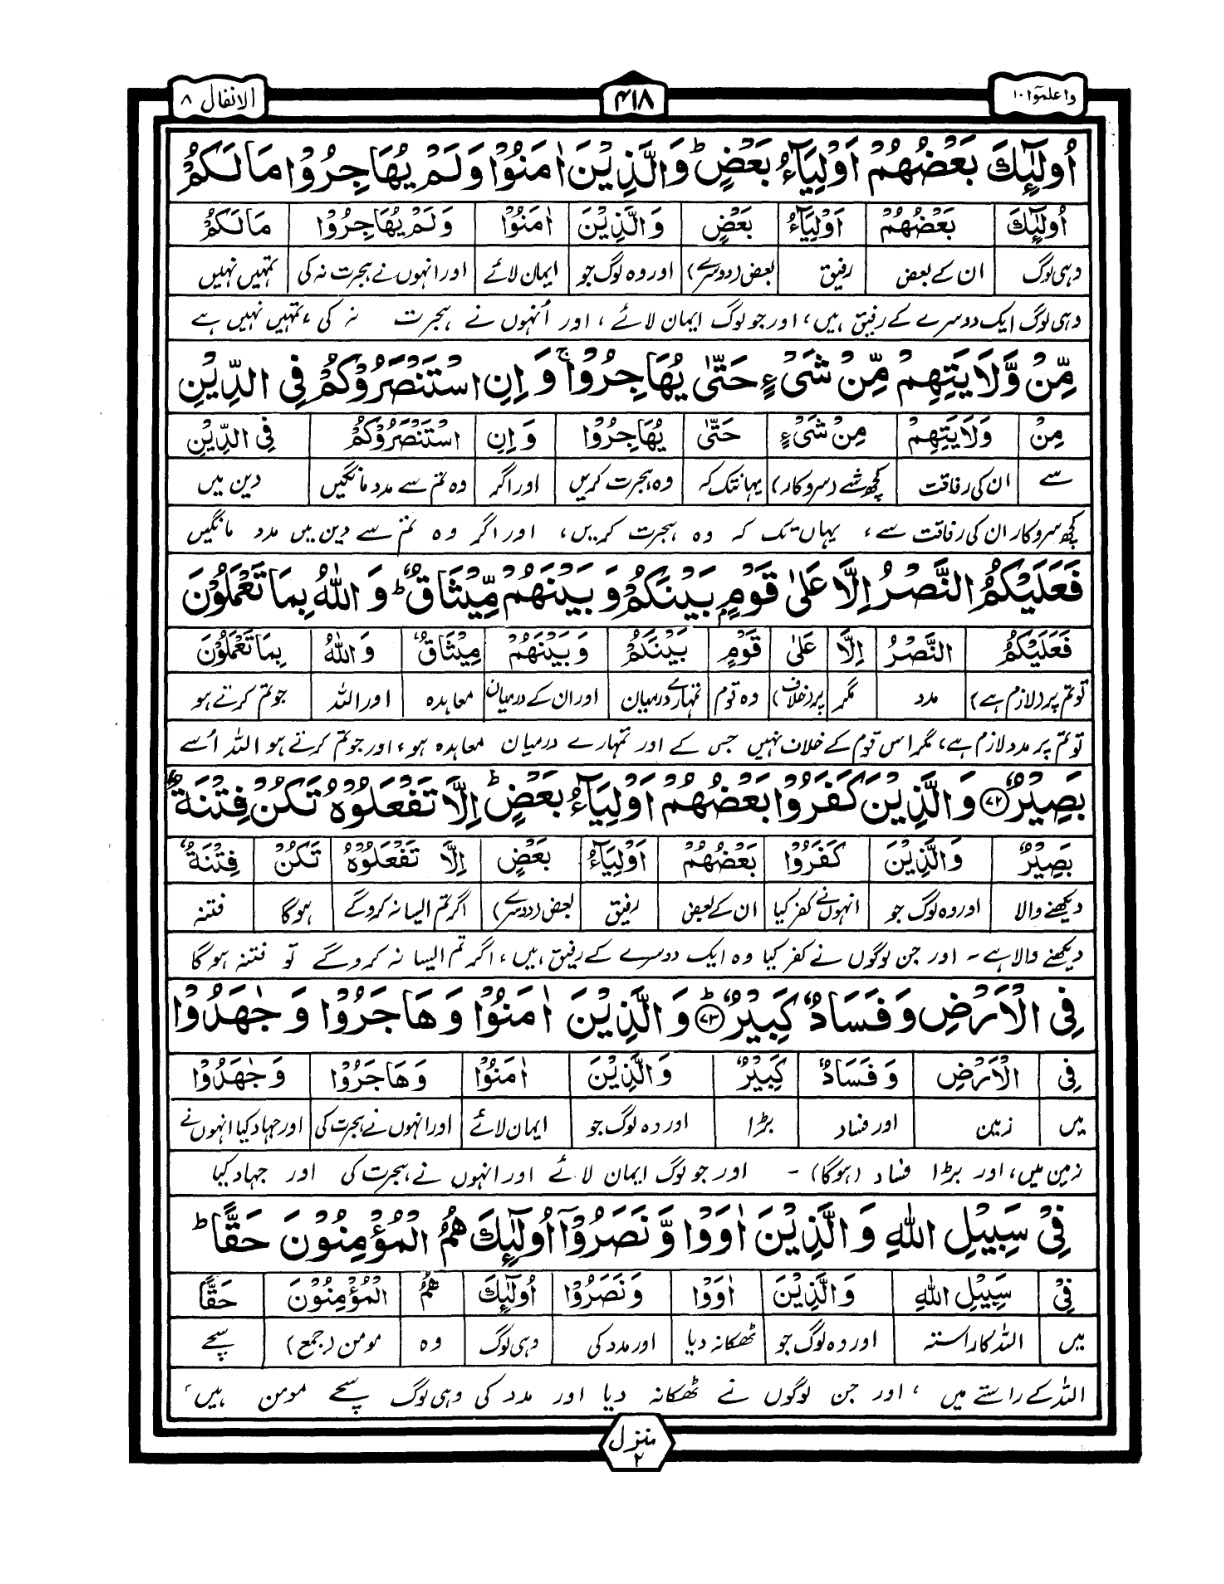 واعلموا ۱۰
۴۱۸
الانفال ۸
اُولٰٓئِكَ بَعۡضُهُمۡ اَوۡلِيَآءُ بَعۡضٍ ؕ وَالَّذِيۡنَ اٰمَنُوۡا وَلَمۡ يُهَاجِرُوۡا مَا لَكُمۡ
اُولٰٓئِكَ بَعۡضُهُمۡ اَوۡلِيَآءُ بَعۡضٍ وَالَّذِيۡنَ اٰمَنُوۡا وَلَمۡ يُهَاجِرُوۡا مَا لَكُمۡ
وہی لوگ ان کے بعض رفیق بعض (دوسرے) اور وہ لوگ جو ایمان لائے اور انہوں نے ہجرت نہ کی تمہیں نہیں
وہی لوگ ایک دوسرے کے رفیق ہیں، اور جو لوگ ایمان لائے، اور اُنہوں نے ہجرت نہ کی، تمہیں نہیں ہے
مِّنۡ وَّلَايَتِهِمۡ مِّنۡ شَىۡءٍ حَتّٰى يُهَاجِرُوۡا ۚ وَاِنِ اسۡتَنۡصَرُوۡكُمۡ فِى الدِّيۡنِ
مِنۡ وَلَايَتِهِمۡ مِنۡ شَىۡءٍ حَتّٰى يُهَاجِرُوۡا وَاِنِ اسۡتَنۡصَرُوۡكُمۡ فِى الدِّيۡنِ
سے ان کی رفاقت کچھ شے (سروکار) یہانتک کہ وہ ہجرت کریں اور اگر وہ تم سے مدد مانگیں دین میں
کچھ سروکار ان کی رفاقت سے، یہاں تک کہ وہ ہجرت کریں، اور اگر وہ تم سے دین میں مدد مانگیں
فَعَلَيۡكُمُ النَّصۡرُ اِلَّا عَلٰى قَوۡمٍۢ بَيۡنَكُمۡ وَبَيۡنَهُمۡ مِّيۡثَاقٌ ؕ وَاللّٰهُ بِمَا تَعۡمَلُوۡنَ
فَعَلَيۡكُمُ النَّصۡرُ اِلَّا عَلٰى قَوۡمٍ بَيۡنَكُمۡ وَبَيۡنَهُمۡ مِيۡثَاقٌ وَاللّٰهُ بِمَا تَعۡمَلُوۡنَ
تو تم پر (لازم ہے) مدد مگر پر (خلاف) وہ قوم تمہارے درمیان اور ان کے درمیان معاہدہ اور اللہ جو تم کرتے ہو
تو تم پر مدد لازم ہے، مگر اس قوم کے خلاف نہیں جس کے اور تمہارے درمیان معاہدہ ہو، اور جو تم کرتے ہو اللہ اُسے
بَصِيۡرٌ ﴿۷۲﴾ وَالَّذِيۡنَ كَفَرُوۡا بَعۡضُهُمۡ اَوۡلِيَآءُ بَعۡضٍ ؕ اِلَّا تَفۡعَلُوۡهُ تَكُنۡ فِتۡنَةٌ
بَصِيۡرٌ وَالَّذِيۡنَ كَفَرُوۡا بَعۡضُهُمۡ اَوۡلِيَآءُ بَعۡضٍ اِلَّا تَفۡعَلُوۡهُ تَكُنۡ فِتۡنَةٌ
دیکھنے والا اور وہ لوگ جو انہوں نے کفر کیا ان کے بعض رفیق بعض (دوسرے) اگر تم ایسا نہ کروگے ہوگا فتنہ
دیکھنے والا ہے۔ اور جن لوگوں نے کفر کیا وہ ایک دوسرے کے رفیق ہیں، اگر تم ایسا نہ کروگے تو فتنہ ہوگا
فِى الۡاَرۡضِ وَفَسَادٌ كَبِيۡرٌ ؕ ﴿۷۳﴾ وَالَّذِيۡنَ اٰمَنُوۡا وَهَاجَرُوۡا وَجٰهَدُوۡا
فِى الۡاَرۡضِ وَفَسَادٌ كَبِيۡرٌ وَالَّذِيۡنَ اٰمَنُوۡا وَهَاجَرُوۡا وَجٰهَدُوۡا
میں زمین اور فساد بڑا اور وہ لوگ جو ایمان لائے اور انہوں نے ہجرت کی اور جہاد کیا انہوں نے
زمین میں، اور بڑا فساد (ہوگا)۔ اور جو لوگ ایمان لائے اور انہوں نے ہجرت کی اور جہاد کیا
فِىۡ سَبِيۡلِ اللّٰهِ وَالَّذِيۡنَ اٰوَوْا وَّنَصَرُوۡۤا اُولٰٓئِكَ هُمُ الۡمُؤۡمِنُوۡنَ حَقًّا ؕ
فِىۡ سَبِيۡلِ اللّٰهِ وَالَّذِيۡنَ اٰوَوۡا وَنَصَرُوۡا اُولٰٓئِكَ هُمُ الۡمُؤۡمِنُوۡنَ حَقًّا
میں اللہ کا راستہ اور وہ لوگ جو ٹھکانہ دیا اور مدد کی وہی لوگ وہ مومن (جمع) سچے
اللہ کے راستے میں، اور جن لوگوں نے ٹھکانہ دیا اور مدد کی وہی لوگ سچے مومن ہیں،
منزل ۲